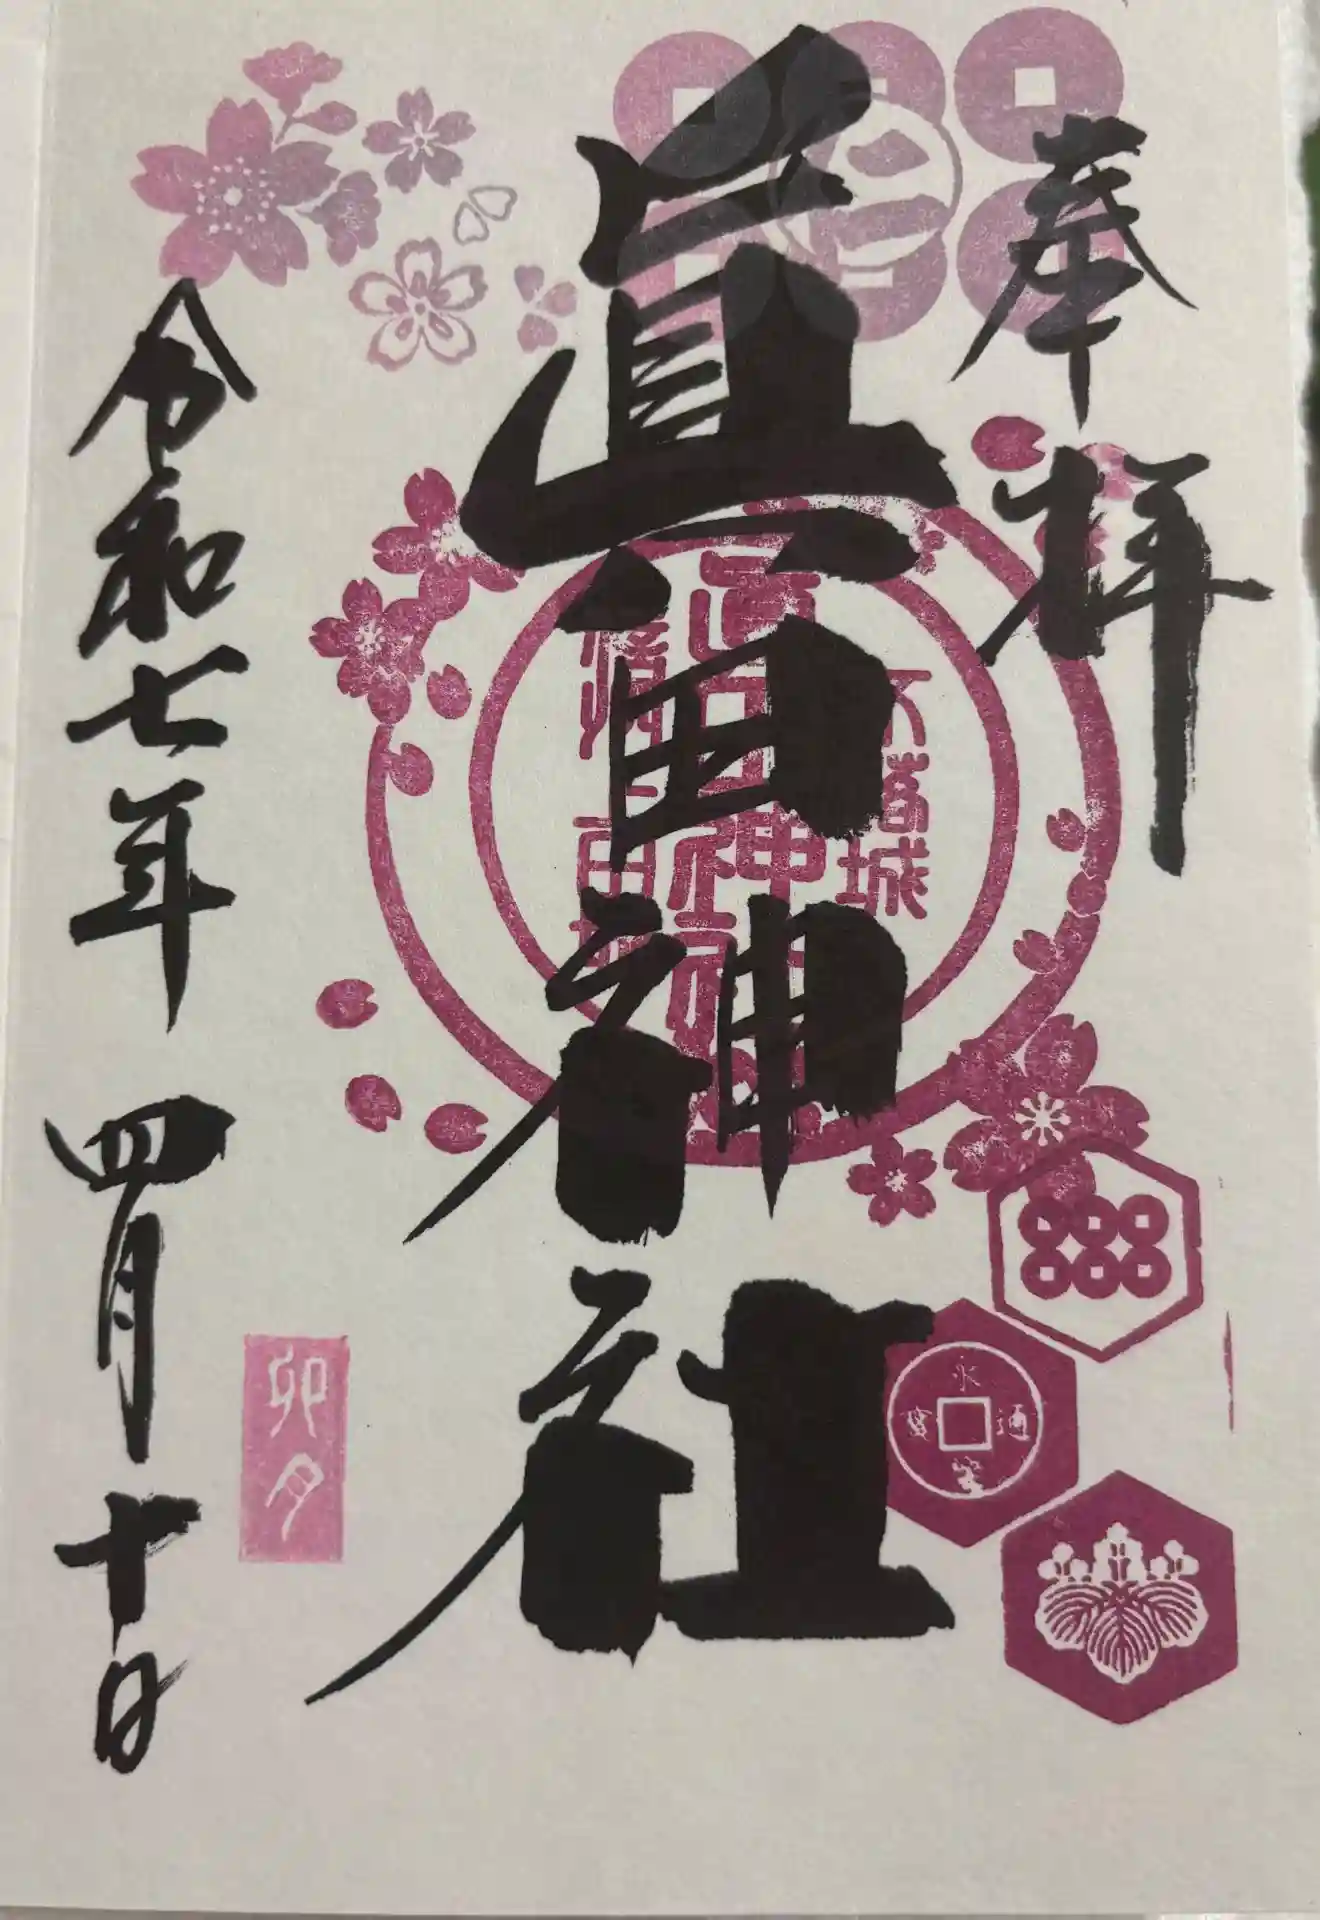 奉拝
眞田神社
不落城
眞田神社
永
通
寳
令和七年 四月十日
卯月